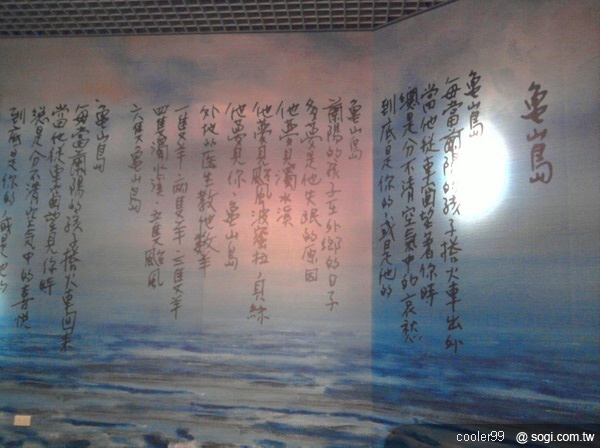 龜山島
龜山島
每當蘭陽的孩子搭火車出外
當他從車窗望著你時
總是分不清空氣中的哀愁
到底是你的,或是他的
龜山島
蘭陽的孩子在外鄉的日子
多夢是他失眠的原因
他夢見濁水溪
他夢見颱風波蜜拉、貝絲
他夢見你,龜山島
外地的醫生教他數羊
一隻羊、兩隻羊、三隻羊
四隻濁水溪、五隻颱風
六隻龜山島
龜山島
每當蘭陽的孩子搭火車回來
當他從車窗望見你時
總是分不清空氣中的喜悅
到底是你的,或是他的
cooler99 @ sogi.com.tw